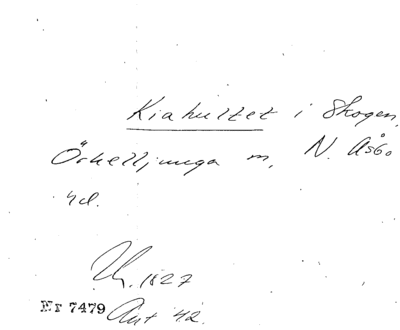 Kiahultet i Skogen,
Örkelljunga m, N. Åsbo
hd.
1827
Nr 7479 Ant 42.